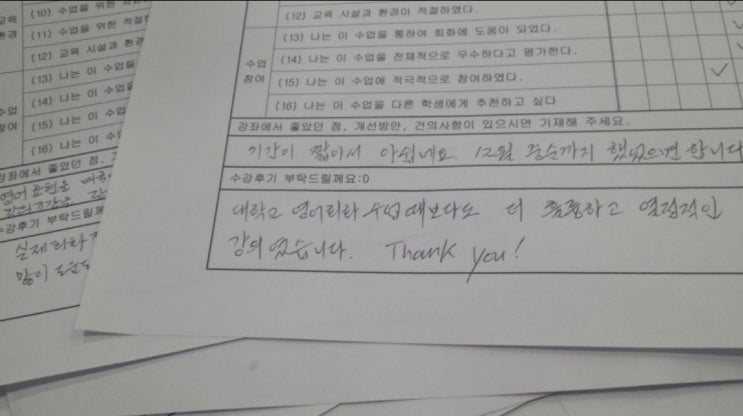 교육
환경
(10) 수업을 위한
(11) 수업을 위한 적절한
(12) 교육 시설과 환경
(13) 나는 이 수업을
(14) 나는 이 수업을
수업
참여
(15) 나는 이 수업
(16) 나는 이 수업
강좌에서 좋았던 점,
영어 표현을
수강후기 부탁드릴께
실제
많이
(12) 교육 시설과 환경이 적절하였다.
(13) 나는 이 수업을 통하여 회화에 도움이 되었다.
수업
참여
(14) 나는 이 수업을 전체적으로 우수하다고 평가한다.
(15) 나는 이 수업에 적극적으로 참여하였다.
(16) 나는 이 수업을 다른 학생에게 추천하고 싶다
강좌에서 좋았던 점, 개선방안, 건의사항이 있으시면 기재해 주세요.
기간이 짧아서 아쉽네요 12월 중순까지 했었으면 합니다
수강후기 부탁드릴께요:D
대학교 영어회화 수업 때보다도 더 훌륭하고 열정적인
강의였습니다. Thank you!